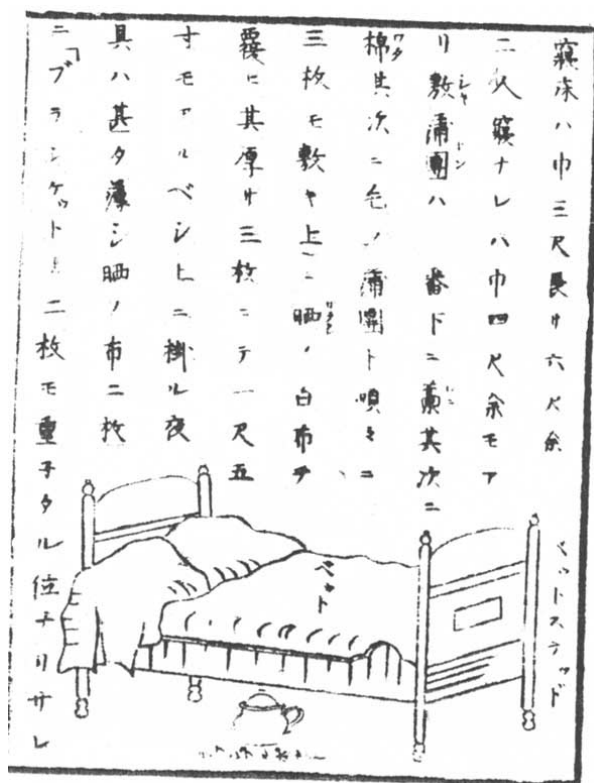 寝床ハ巾三尺長サ六尺余
二人寝ナレハ巾四尺余モア
リ敷蒲團ハ 番下ニ藁其次ニ
棉其次ニ毛ノ蒲團ト唄々ニ
三枚モ敷キ上ニ晒ノ白布ヲ
覆ヒ其厚サ三枚ニテ一尺五
寸モアルベシ上ニ掛ル夜
具ハ甚タ薄シ晒ノ布二枚
ニ「ブランケット」二枚モ重子タル位ナリサレ
ベットステッド
ベット